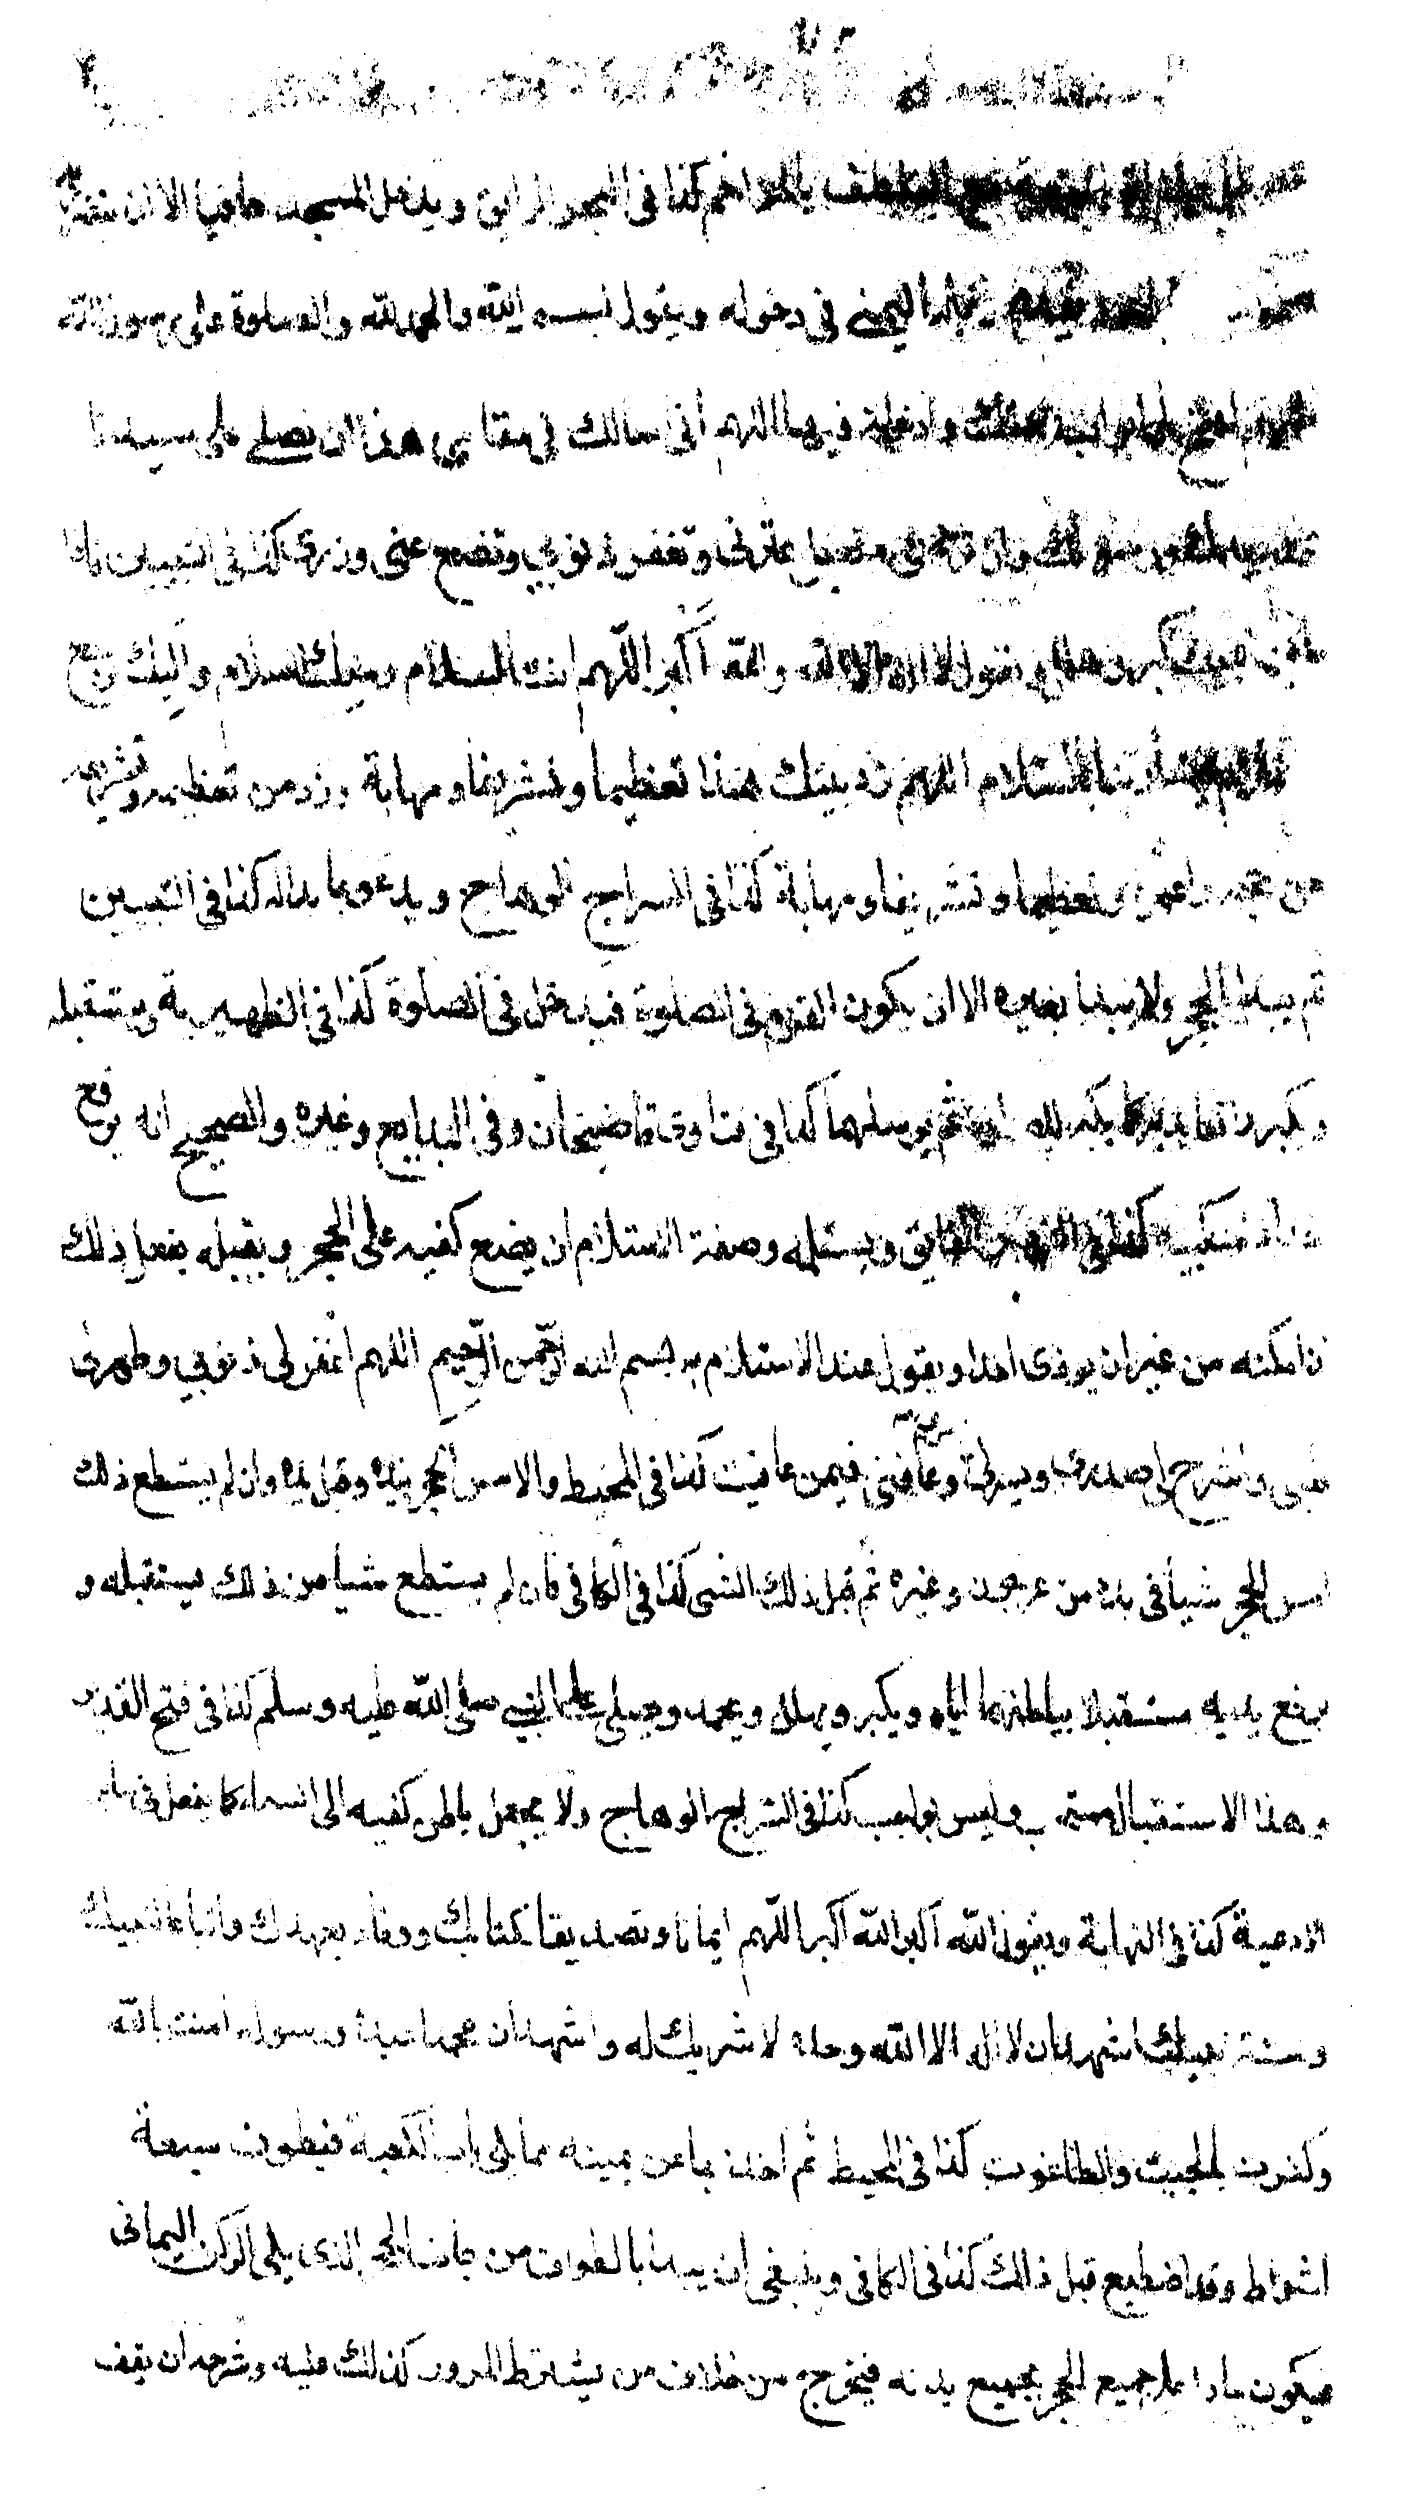 مع التلطف بالمزاحم كذا فى البحر الرايق ويدخل المسجد حافيا الا ان يستضر
رجله اليمنى فى دخوله ويقول بسم الله والحمد لله والصلوة على رسول الله
افتح لى ابواب رحمتك وادخلنى فيها اللهم انى اسالك فى مقامى هذا ان تصلى على سيدنا
وان ترحمنى وتقيل عثرتى وتغفر ذنوبى وتضع عنى وزرى كذا فى التبيين فاذا
البيت كبر وهلل ويقول لا اله الا الله والله اكبر اللهم انت السلام ومنك السلام واليك يرجع
السلام حينا ربنا بالسلام اللهم زد بيتك هذا تعظيما وتشريفا ومهابة وزد من تعظيمه وتشريفه
من حجه واعتمره تعظيما وتشريفا ومهابة كذا فى السراج الوهاج ويدعو بما بدا له كذا فى التبيين
ثم يبدا بالحجر ولا يبدا بغيره الا ان يكون القوم فى الصلوة فيدخل فى الصلوة كذا فى الظهيرية ويستقبله
ويكبر رافعا يديه كما يكبر للصلوة ثم يرسلهما كذا فى فتاوى قاضيخان وفى البدايع وغيره والصحيح انه يرفع
حذاء منكبيه كذا فى النهر الفايق ويستلمه وصفة الاستلام ان يضع كفيه على الحجر ويقبله يفعل ذلك
ان امكنه من غير ان يوذى احدا ويقول عند الاستلام بسم الله الرحمن الرحيم اللهم اغفر لى ذنوبى وطهر لى
قلبى واشرح لى صدرى ويسر لى امرى وعافنى فيمن عافيت كذا فى المحيط والا مس الحجر بيده وقبل يده وان لم يستطع ذلك
امس الحجر شيأ فى يده من عرجون وغيره ثم قبل ذلك الشى كذا فى الكافى فان لم يستطع شيأ من ذلك يستقبله و
يرفع يديه مستقبلا بباطنهما اياه ويكبر ويهلل ويحمد ويصلى على النبى صلى الله عليه وسلم كذا فى فتح القدير
وهذا الاستقبال مستحب وليس بواجب كذا فى السراج الوهاج ولا يجعل باطن كفيه الى السماء كما يفعل فى ساير
الادعية كذا فى النهاية ويقول الله اكبر الله اكبر اللهم ايمانا وتصديقا بكتابك ووفاء بعهدك واتباعا لنبيك
وسنة نبيك اشهد ان لا اله الا الله وحده لا شريك له واشهد ان محمدا عبده ورسوله امنت بالله
وكفرت بالجبت والطاغوت كذا فى المحيط ثم اخذ بما عن يمينه مما يلى باب الكعبة فيطوف سبعة
اشواط وقد اضطبع قبل ذلك كذا فى الكافى وينبغى ان يبدا بالطواف من جانب الحجر الذى يلى الركن اليمانى
فيكون مارا على جميع الحجر بجميع بدنه فيخرج من خلاف من يشترط المرور كذلك عليه وشرحه ان يقف